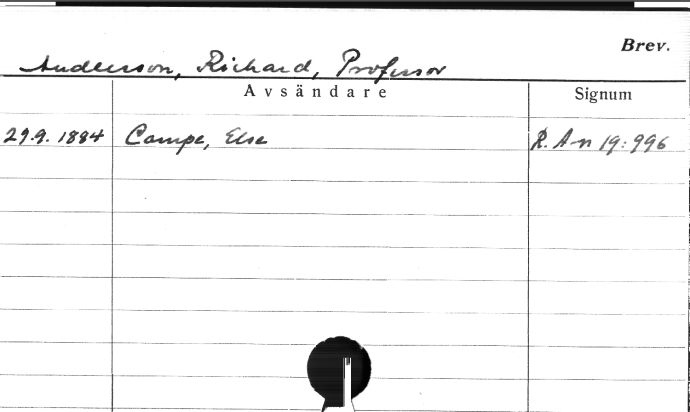 Brev.
Andersson, Richard, Professor
Avsändare Signum
29.9.1884 Campe, Else R. An 19:996